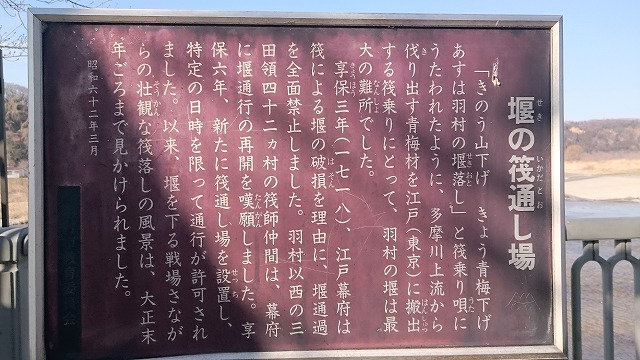 堰の筏通し場
せき いかだとお
「きのう山下げ きょう青梅下げ
あすは羽村の堰落し」と筏乗り唄に
せきおと うた
うたわれたように、多摩川上流から
伐り出す青梅材を江戸(東京)に搬出
き はんしゅつ
する筏乗りにとって、羽村の堰は最
大の難所でした。
なんしょ
享保三年(一七一八)、江戸幕府は
きょうほう
筏による堰の破損を理由に、堰通過
はそん
を全面禁止しました。羽村以西の三
田領四十二ヵ村の筏師仲間は、幕府
に堰通行の再開を嘆願しました。享
たんがん
保六年、新たに筏通し場を設置し、
せっち
特定の日時を限って通行が許可され
ました。以来、堰を下る戦場さなが
らの壮観な筏落しの風景は、大正末
そうかん
年ごろまで見かけられました。
昭和六十二年三月
会